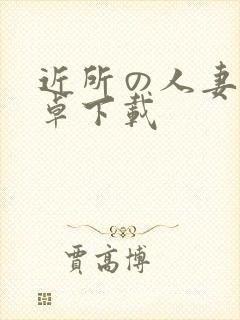 近所の人妻
卓下载
賈高博